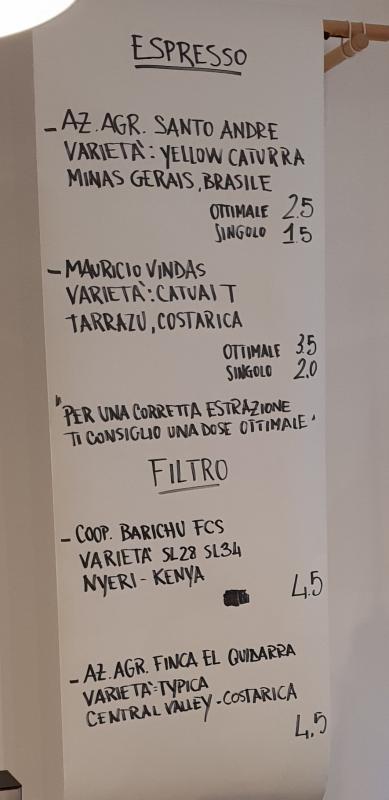 ESPRESSO
- AZ. AGR. SANTO ANDRE
VARIETÀ: YELLOW CATURRA
MINAS GERAIS, BRASILE
OTTIMALE 2.5
SINGOLO 1.5
- MAURICIO VINDAS
VARIETÀ: CATUAI T
TARRAZU, COSTARICA
OTTIMALE 3.5
SINGOLO 2.0
"PER UNA CORRETTA ESTRAZIONE
TI CONSIGLIO UNA DOSE OTTIMALE"
FILTRO
- COOP. BARICHU FCS
VARIETA' SL28 SL34
NYERI - KENYA
4.5
- AZ. AGR. FINCA EL QUIDARRA
VARIETÀ: TYPICA
CENTRAL VALLEY - COSTARICA
4.5